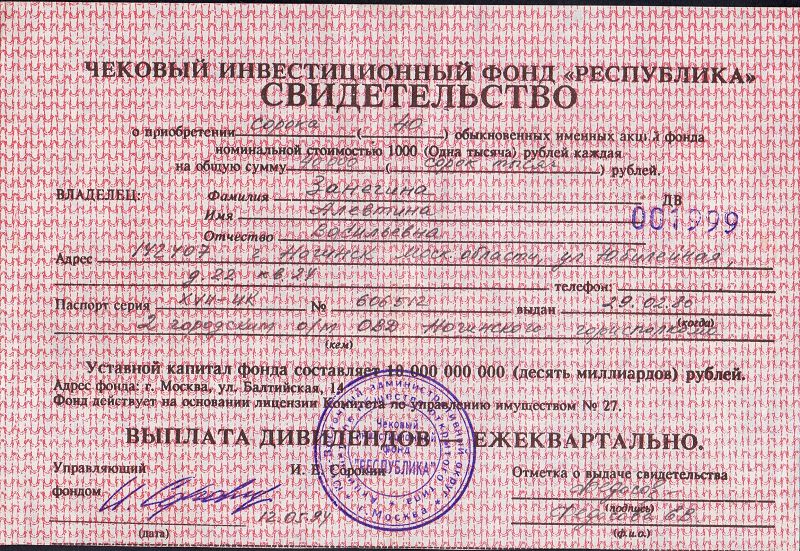 ЧЕКОВЫЙ ИНВЕСТИЦИОННЫЙ ФОНД «РЕСПУБЛИКА»
СВИДЕТЕЛЬСТВО
о приобретении сорока (40) обыкновенных именных акций фонда
номинальной стоимостью 1000 (Одна тысяча) рублей каждая
на общую сумму 40 000 (сорок тысяч) рублей.
ВЛАДЕЛЕЦ: Фамилия Занегина
ДВ
Имя Алевтина
001999
Отчество Васильевна
Адрес 142407 г. Ногинск Моск. области, ул Юбилейная,
д. 22 кв. 24 телефон:
Паспорт серия XVII-ИК № 606512 выдан 29.02.80
(когда)
2 городским о/м ОВД Ногинского горисполкома
(кем)
Уставной капитал фонда составляет 10 000 000 000 (десять миллиардов) рублей.
Адрес фонда: г. Москва, ул. Балтийская, 14
Фонд действует на основании лицензии Комитета по управлению имуществом № 27.
ВЫПЛАТА ДИВИДЕНДОВ ЕЖЕКВАРТАЛЬНО.
Управляющий
фондом
И. В. Сорокин
Отметка о выдаче свидетельства
(подпись)
12.05.94
(дата)
(ф.и.о.)
Чековый
фонд
"РЕСПУБЛИКА"
г. Москва